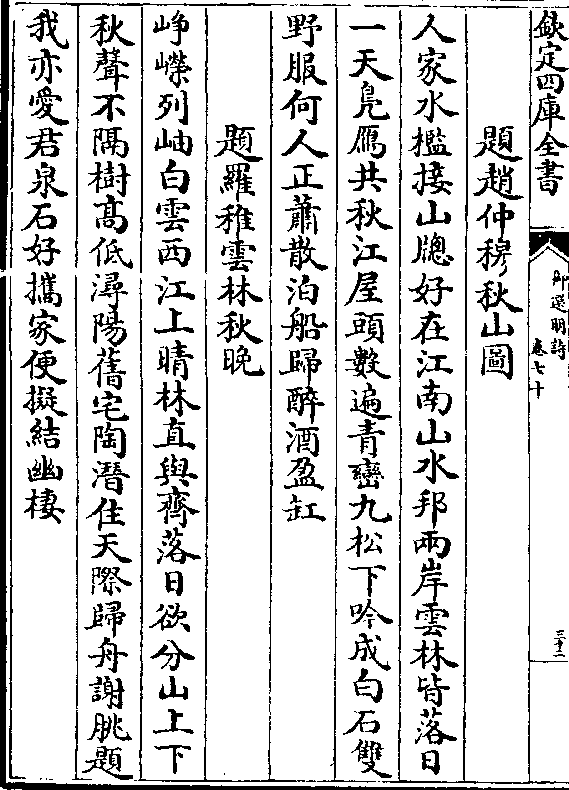 欽定四庫全書
御選明詩
卷七十
三十二
題趙仲穆秋山圖
人家水檻接山牕好在江南山水邦兩岸雲林皆落日
一天鳧鴈共秋江屋頭數遍青巒九松下吟成白石雙
野服何人正蕭散泊船歸醉酒盈缸
題羅稚雲林秋晚
崢嶸列岫白雲西江上晴林直與齊落日欲分山上下
秋聲不隔樹髙低潯陽舊宅陶潛住天際歸舟謝朓題
我亦愛君泉石好攜家便擬結幽棲